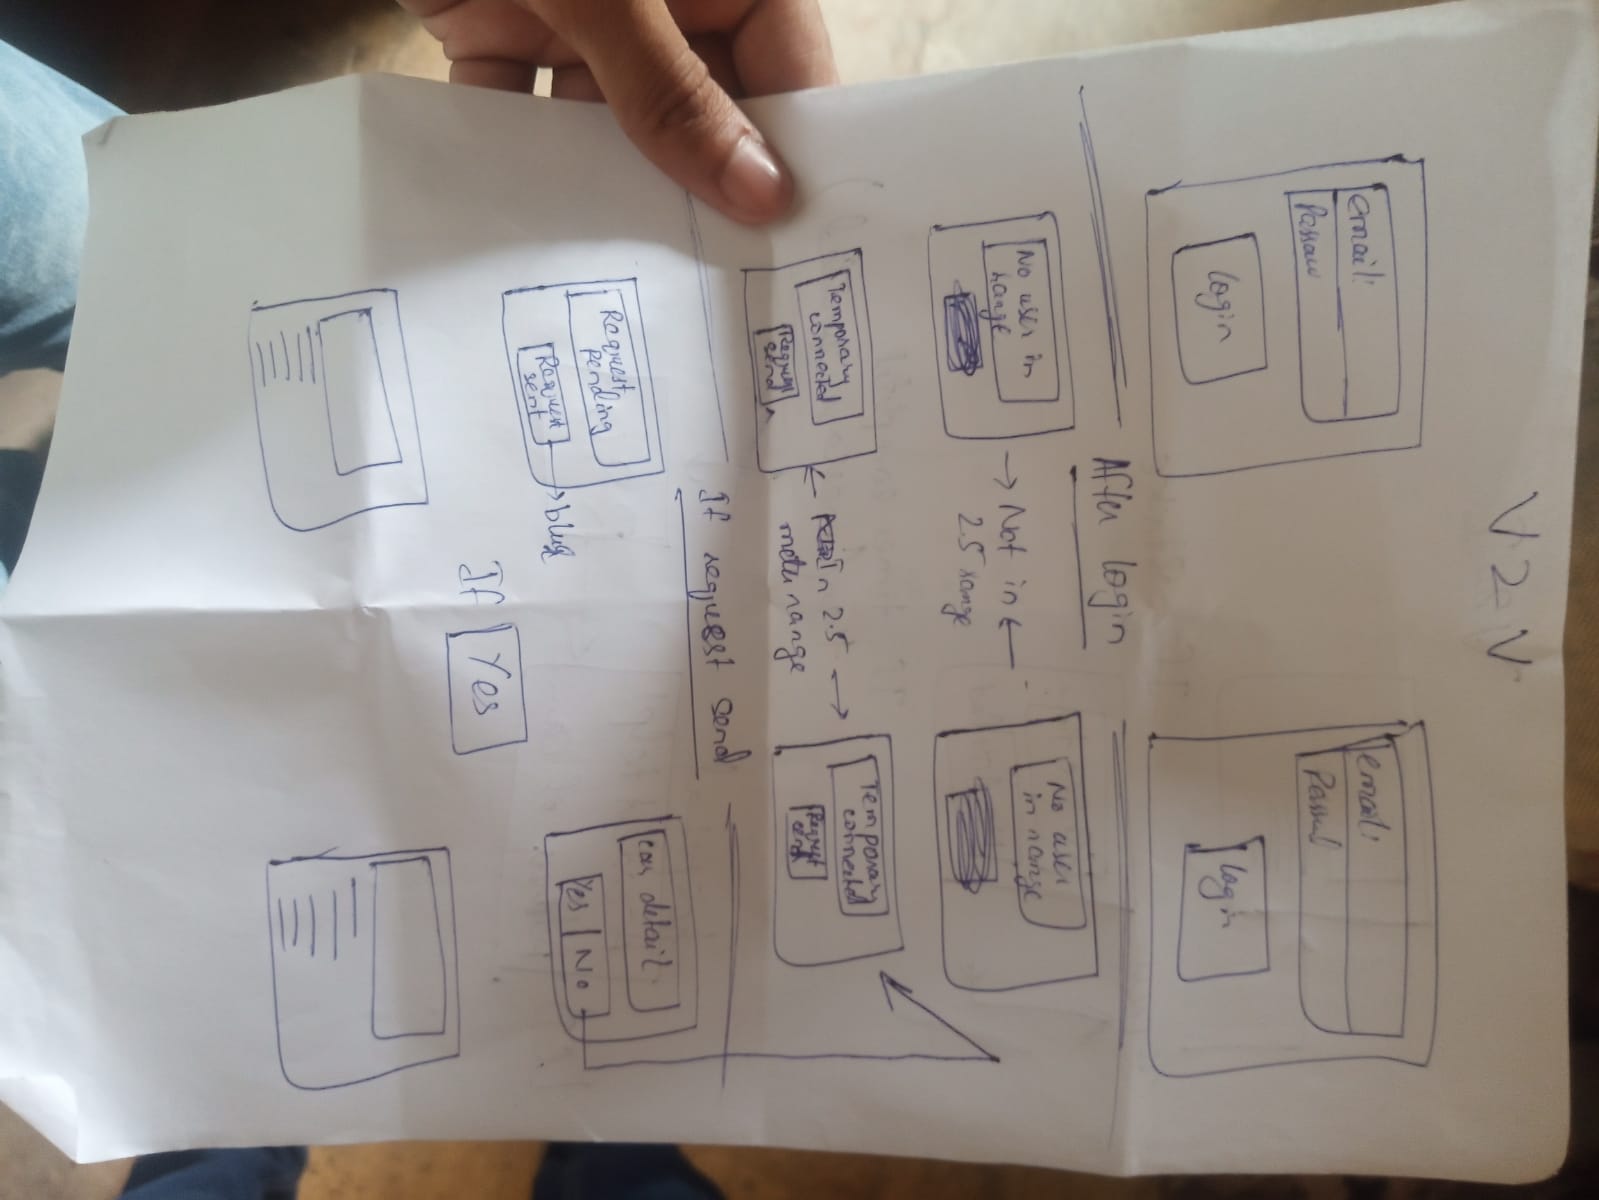 V2V
email:
email:
Login
Login
After login
No user in
range
No user
in range
→ Not in ←
2.5 range
Temporary
connected
Request
send
← In 2.5 →
meter range
Temporary
connected
Request
send
If request send
Request
Pending
Request
sent
→ blue
car detail
Yes | No
If Yes